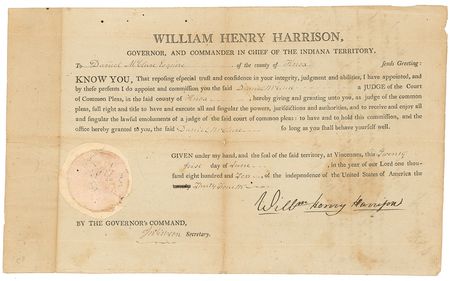 WILLIAM HENRY HARRISON,
GOVERNOR, AND COMMANDER IN CHIEF OF THE INDIANA TERRITORY,
To Daniel McClure Esquire of the county of Knox sends Greeting:
KNOW YOU, That reposing especial trust and confidence in your integrity, judgment and abilities, I have appointed, and
by these presents I do appoint and commission you the said Daniel McClure a JUDGE of the Court
of Common Pleas, in the said county of Knox hereby giving and granting unto you, as judge of the common
pleas, full right and title to have and execute all and singular the powers, jurisdictions and authorities, and to receive and enjoy all
and singular the lawful emoluments of a judge of the said court of common pleas: to have and to hold this commission, and the
office hereby granted to you, the said Daniel McClure so long as you shall behave yourself well.
GIVEN under my hand, and the seal of the said territory, at Vincennes, this Twenty
first day of June in the year of our Lord one thou-
sand eight hundred and Ten of the independence of the United States of America the
Thirty Fourth
Willm Henry Harrison
BY THE GOVERNOR'S COMMAND,
Secretary.